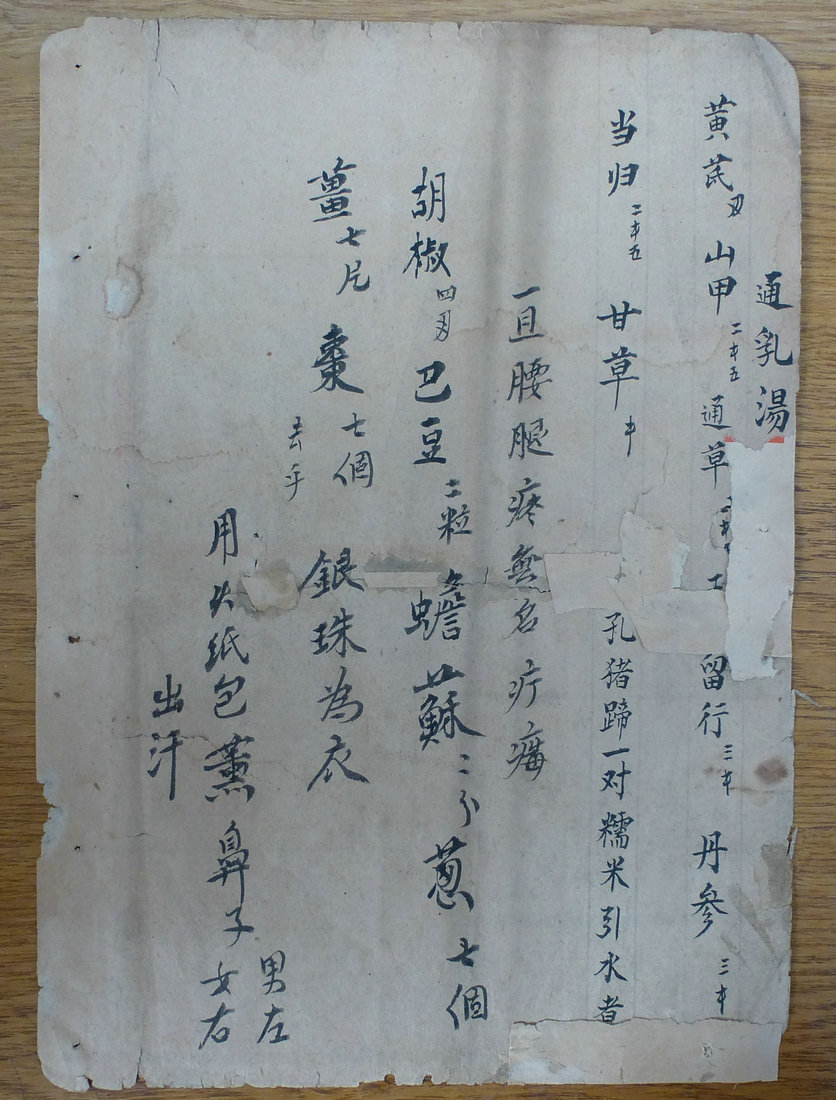 通乳湯
黃芪 刄 山甲 二才五 通草 留行 三才 丹參 三才
当归 二才五 甘草 才 孔猪蹄一对糯米引水煮
一且腰腿疼無名疔瘡
胡椒 四刄 巴豆 二粒 蟾蘇 二分 葱 七個
薑 七片 棗 七個 去乎 銀珠為衣
用火纸包薰鼻子 男左 女右
出汗